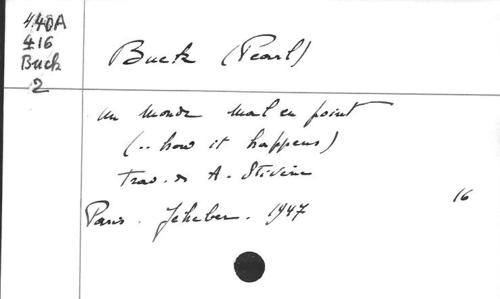 4.40A
416
Buck
2
Buck (Pearl)
un monde mal en point
(.. how it happens)
Trad. de A.
Paris. Jeheber. 1947
16